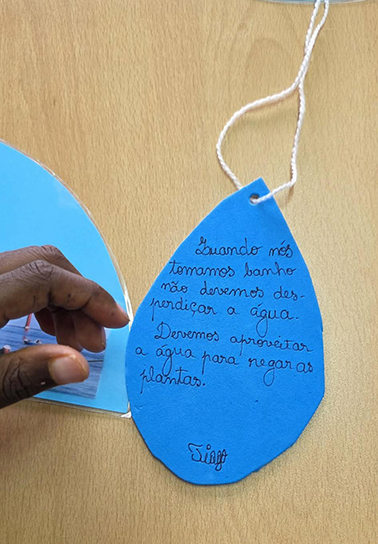 Quando nós
tomamos banho
não devemos des-
perdiçar a água.
Devemos aproveitar
a água para regar as
plantas.
Tiago